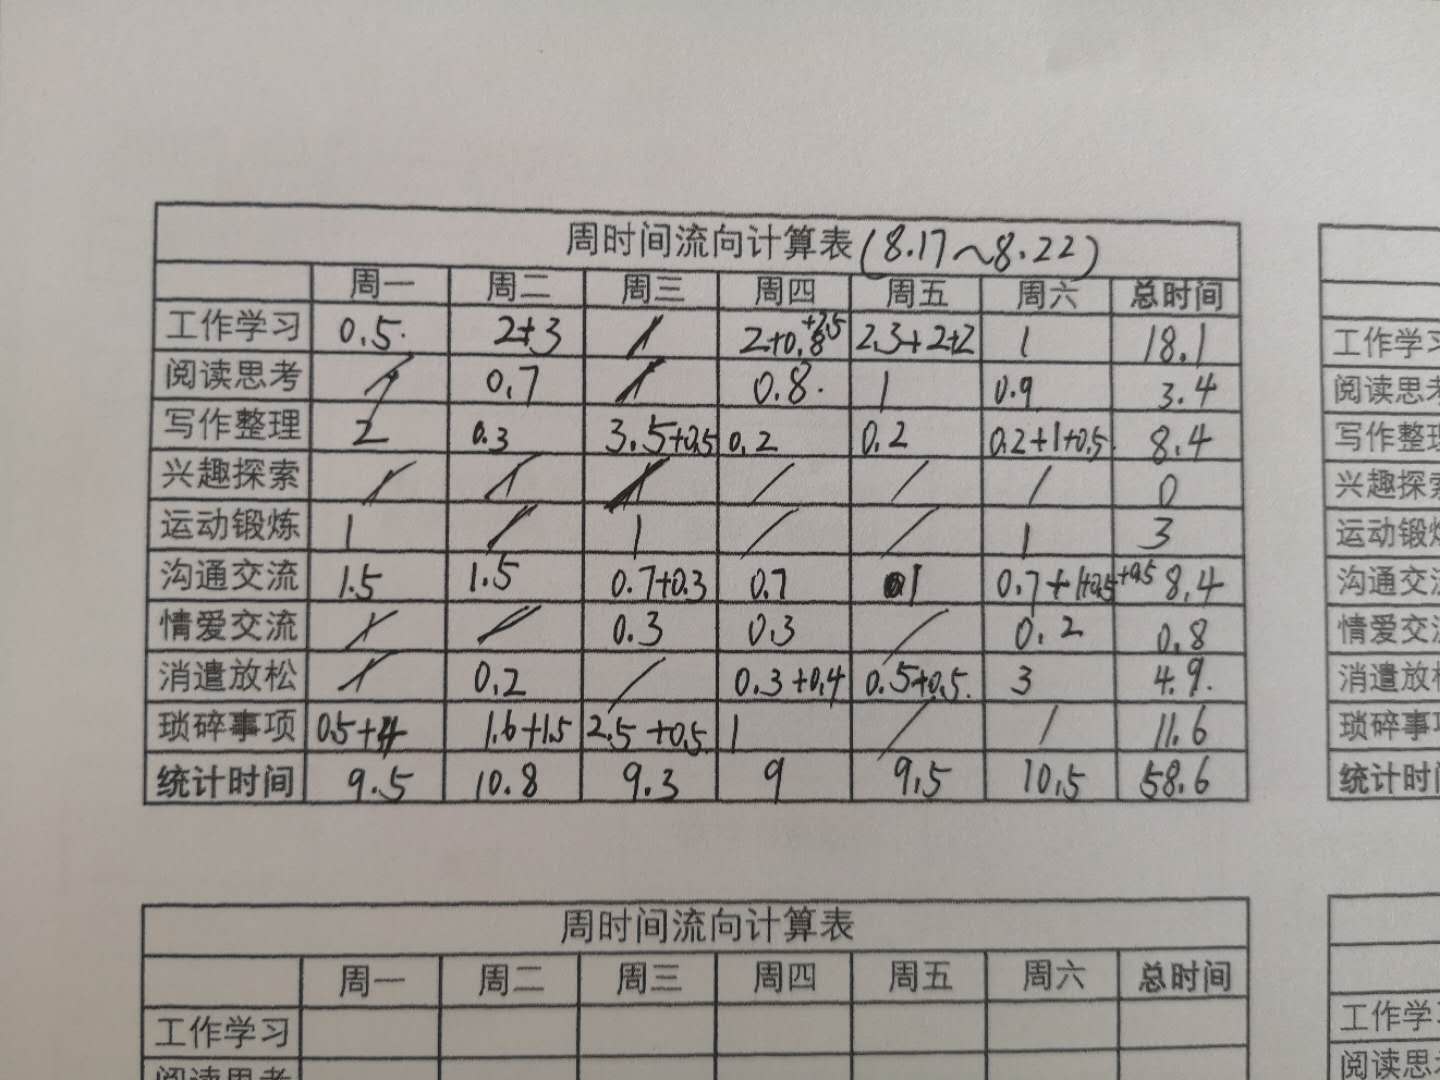 周时间流向计算表(8.17~8.22)
周一 周二 周三 周四 周五 周六 总时间
工作学习 0.5 2+3 / 2+0.8+2.5 2.3+2+2 1 18.1 工作学习
阅读思考 / 0.7 / 0.8 1 0.9 3.4 阅读思考
写作整理 2 0.3 3.5+0.5 0.2 0.2 0.2+1+0.5 8.4 写作整理
兴趣探索 / / / / / / 0 兴趣探索
运动锻炼 1 / 1 / / 1 3 运动锻炼
沟通交流 1.5 1.5 0.7+0.3 0.7 1 0.7+1+0.5+0.5 8.4 沟通交流
情爱交流 / / 0.3 0.3 / 0.2 0.8 情爱交流
消遣放松 / 0.2 / 0.3+0.4 0.5+0.5 3 4.9 消遣放松
琐碎事项 0.5+4 1.6+1.5 2.5+0.5 1 / / 11.6 琐碎事项
统计时间 9.5 10.8 9.3 9 9.5 10.5 58.6 统计时间
周时间流向计算表
周一 周二 周三 周四 周五 周六 总时间
工作学习 工作学习
阅读思考 阅读思考